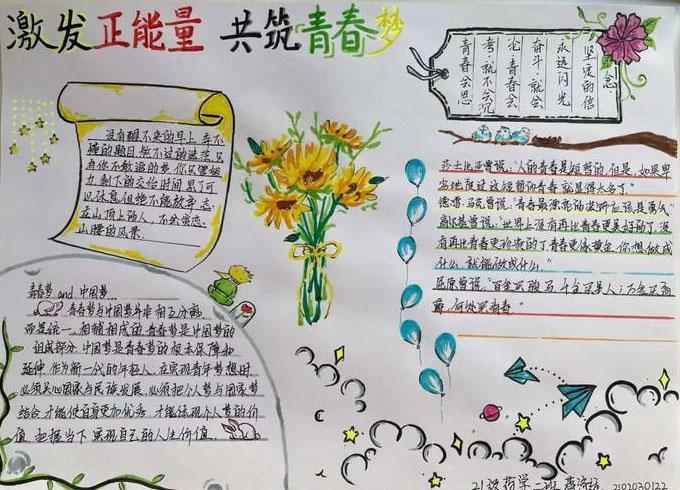 激发正能量 共筑青春梦
坚定的信念
永远闪光
奋斗,就会
论青春会
考,就不会沉
青春会思
没有醒不来的早上 弄不
懂的题目 熬不过的迷茫 只
有你不敢追的梦 你只管努
力 剩下的交给时间 累了可
以休息 但绝不能放弃 志
在山顶上的人,不会贪恋
山腰的风景.
莎士比亚曾说:"人的青春是短暂的,但是,如果卑
劣地度过这短暂的青春 就显得太长了."
青春最漂亮的装饰应该是勇气"
高尔基曾说:"世界上没有再比青春更美好的了,没
有再比青春更珍贵的了 青春更像黄金,你想做成
什么,就能做成什么."
屈原曾说:"百金买骏马,千金买美人;万金买高
爵,何处买青春."
青春梦 and 中国梦
青春梦与中国梦并非相互分离,
而是统一,相辅相成的 青春梦是中国梦的
组成部分,中国梦是青春梦的根本保障和
延伸,作为新一代的年轻人,在实现青年梦想时
必须关心国家与民族发展,必须把个人梦与国家梦
结合,才能使自身更加优秀,才能体现个人梦的价
值,把握当下,实现自己的人生价值.
21级药学二班 2102030122